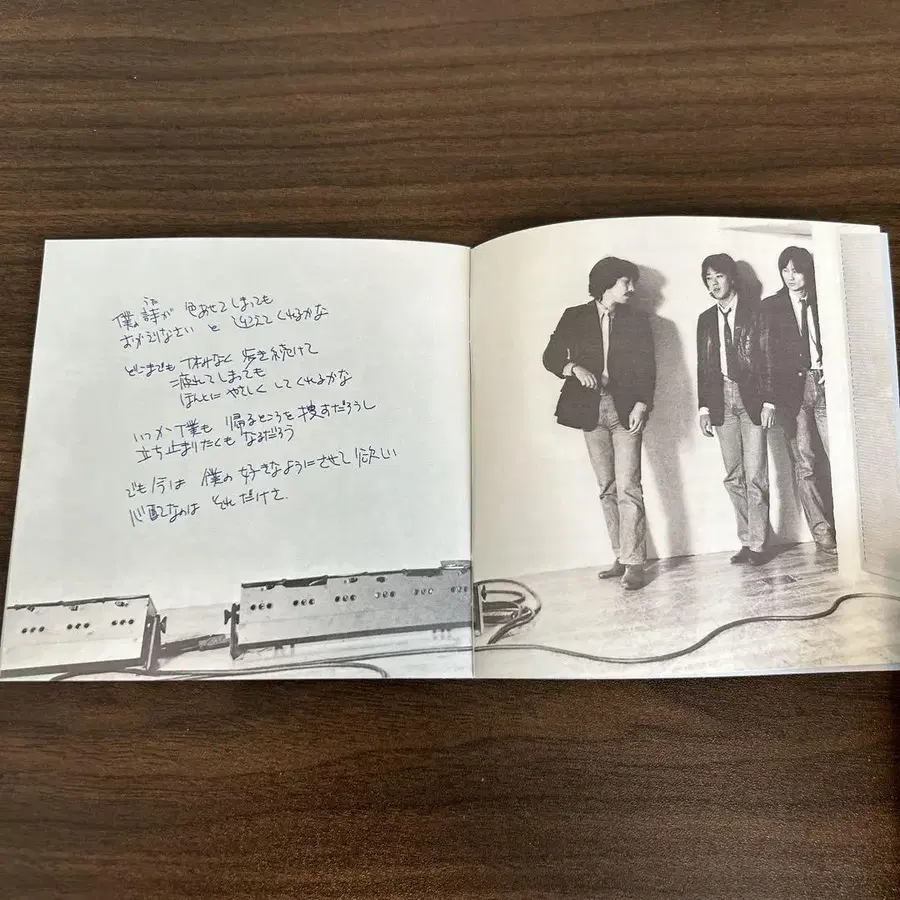 うた
僕の詩が 色あせてしまっても
おかえりなさい と 迎えてくれるかな
どこまでも 休みなく 歩き続けて
疲れてしまっても
ほんとに やさしく してくれるかな
いつか 僕も 帰るところを 捜すだろうし
立ち止まりたくも なるだろう
でも 今は 僕の 好きなように させて 欲しい
心配なのは それだけさ.